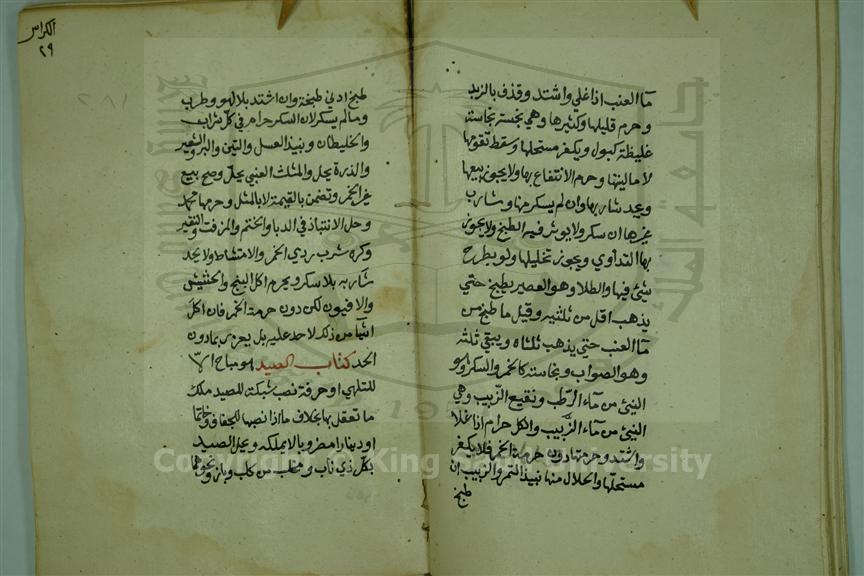 ماء العنب اذا غلي واشتد وقذف بالزبد
وحرم قليلها وكثيرها وهي نجسة نجاسة
غليظة كبول ويكفر مستحلها وسقط تقومها
لا ماليتها وحرم الانتفاع بها ولا يجوز بيعها
ويحد شاربها وان لم يسكر منها وشارب
غيرها ان سكر ولا يوثر فيه الطبخ ولا يجوز
بها التداوي ويجوز تخليلها ولو بطرح
شيئ فيها والطلا وهو العصير يطبخ حتي
يذهب اقل من ثلثيه وقيل ما طبخ من
ماء العنب حتي يذهب ثلثاه ويبقي ثلثه
وهو الصواب ونجاسته كالخمر والسكر وهو
النيئ من ماء الرطب ونقيع الزبيب وهي
النيئ من ماء الزبيب والكل حرام اذا غلا
واشتد وحرمتها دون حرمة الخمر فلا يكفر
مستحلها والحلال منها نبيذ التمر والزبيب ان
طبخ
الكراس
٢٩
طبخ ادني طبخة وان اشتد بلا لهو وطرب
وما لم يسكر لان السكر حرام في كل شراب
والخليطان ونبيذ العسل والتين والبر والشعير
والذرة يحل والمثلث العنبي يحل وصح بيع
غير الخمر وتضمن بالقيمة لا بالمثل وحرمها محمد
وحل الانتباذ في الدبا والحنتم والمزفت والنقير
وكره شرب ردي الخمر والامتشاط ولا يحد
شاربه بلا سكر ويحرم اكل البنج والحشيش
والافيون لكن دون حرمة الخمر فان اكل
شيأ من ذلك لا حد عليه بل يعزر بما دون
الحد كتاب الصيد هو مباح الا
للتلهي او حرفة نصب شبكة للصيد ملك
ما تعقل بها بخلاف ما اذا نصبها للجفاف وخاتما
او دينارا مضروبا لا يملكه ويحل الصيد
بكل ذي ناب ومخلب من كلب وباز ونحوهما
Copyright © King Saud University
جامعة الملك سعود